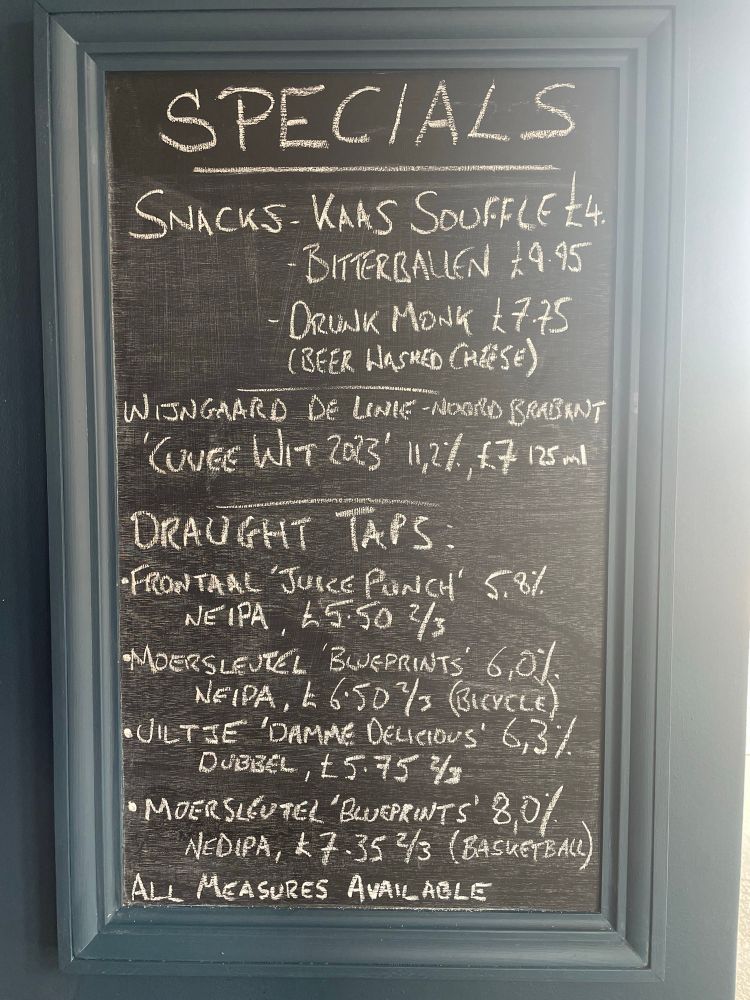 SPECIALS
SNACKS - KAAS SOUFFLE £4.
- BITTERBALLEN £9.95
- DRUNK MONK £7.75
(BEER WASHED CHEESE)
WIJNGAARD DE LINIE - NOORD BRABANT
'CUVEE WIT 2023' 11,2%, £7 125ml
DRAUGHT TAPS:
•FRONTAAL 'JUICE PUNCH' 5.8%
NEIPA, £5.50 2/3
•MOERSLEUTEL 'BLUEPRINTS' 6,0%
NEIPA, £6.50 2/3 (BICYCLE)
•UILTJE 'DAMME DELICIOUS' 6,3%
DUBBEL, £5.75 2/3
•MOERSLEUTEL 'BLUEPRINTS' 8,0%
NEDIPA, £7.35 2/3 (BASKETBALL)
ALL MEASURES AVAILABLE